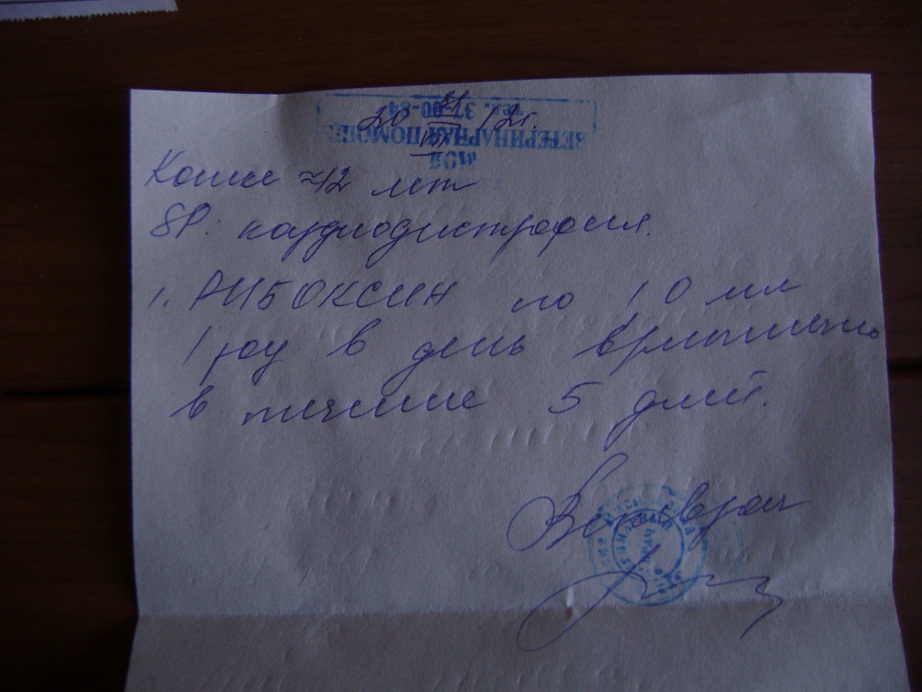 20 21/III 12г.
тел. 37-00-84
ВЕТЕРИНАРНАЯ ПОМОЩЬ
Кошка ≈12 лет
кардиодистрофия.
1. РИБОКСИН по 1,0 мл
1 раз в день
в течение 5 дней.
Ветврач